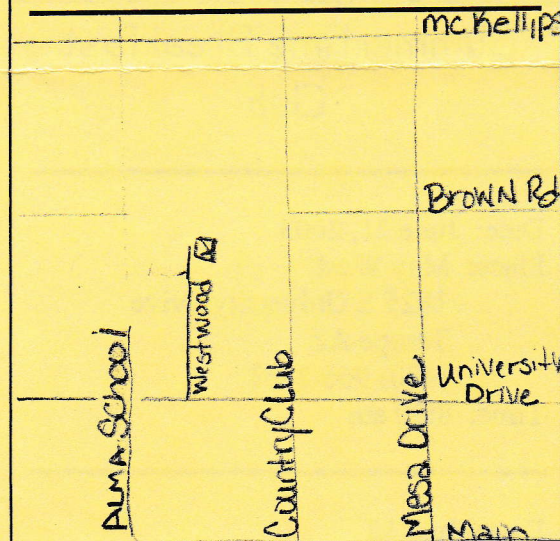 McKellips
Brown Rd
Westwood
ALMA School
Country Club
Mesa Drive
University
Drive
Main